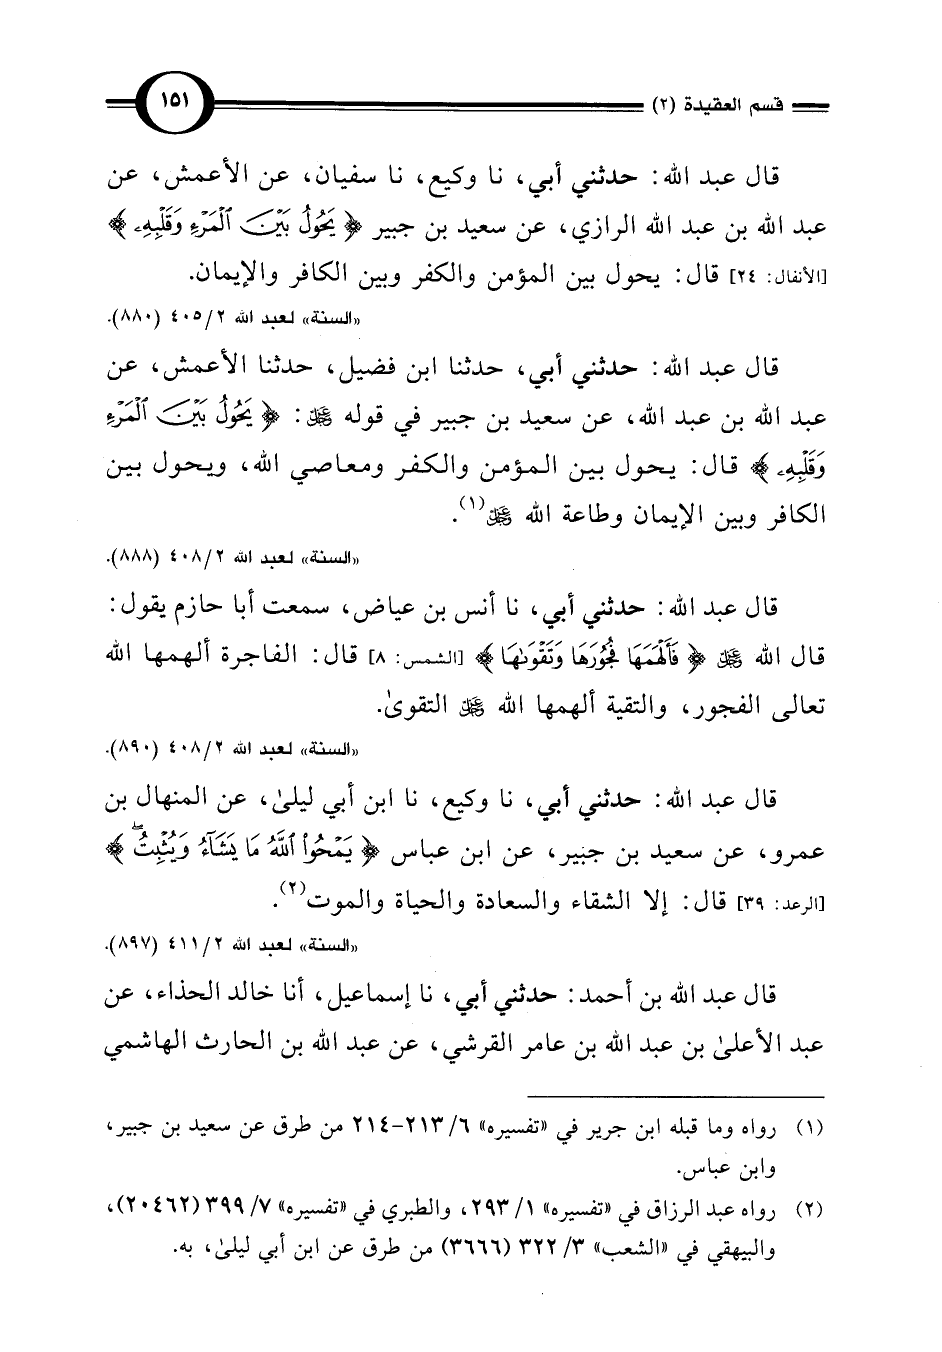 قسم العقيدة (٢) ١٥١
قال عبد الله: حدثني أبي، نا وكيع، نا سفيان، عن الأعمش، عن
عبد الله بن عبد الله الرازي، عن سعيد بن جبير ﴿يَحُولُ بَيْنَ ٱلْمَرْءِ وَقَلْبِهِۦ﴾
[الأنفال: ٢٤] قال: يحول بين المؤمن والكفر وبين الكافر والإيمان.
«السنة» لعبد الله ٢/ ٤٠٥ (٨٨٠).
قال عبد الله: حدثني أبي، حدثنا ابن فضيل، حدثنا الأعمش، عن
عبد الله بن عبد الله، عن سعيد بن جبير في قوله ﷻ: ﴿يَحُولُ بَيْنَ ٱلْمَرْءِ
وَقَلْبِهِۦ﴾ قال: يحول بين المؤمن والكفر ومعاصي الله، ويحول بين
الكافر وبين الإيمان وطاعة الله ﷻ(١).
«السنة» لعبد الله ٢/ ٤٠٨ (٨٨٨).
قال عبد الله: حدثني أبي، نا أنس بن عياض، سمعت أبا حازم يقول:
قال الله ﷻ ﴿فَأَلْهَمَهَا فُجُورَهَا وَتَقْوَىٰهَا﴾ [الشمس: ٨] قال: الفاجرة ألهمها الله
تعالى الفجور، والتقية ألهمها الله ﷻ التقوىٰ.
«السنة» لعبد الله ٢/ ٤٠٨ (٨٩٠).
قال عبد الله: حدثني أبي، نا وكيع، نا ابن أبي ليلىٰ، عن المنهال بن
عمرو، عن سعيد بن جبير، عن ابن عباس ﴿يَمْحُوا۟ ٱللَّهُ مَا يَشَآءُ وَيُثْبِتُ ۖ﴾
[الرعد: ٣٩] قال: إلا الشقاء والسعادة والحياة والموت(٢).
«السنة» لعبد الله ٢/ ٤١١ (٨٩٧).
قال عبد الله بن أحمد: حدثني أبي، نا إسماعيل، أنا خالد الحذاء، عن
عبد الأعلىٰ بن عبد الله بن عامر القرشي، عن عبد الله بن الحارث الهاشمي
(١) رواه وما قبله ابن جرير في «تفسيره» ٦/ ٢١٣-٢١٤ من طرق عن سعيد بن جبير،
وابن عباس.
(٢) رواه عبد الرزاق في «تفسيره» ١/ ٢٩٣، والطبري في «تفسيره» ٧/ ٣٩٩ (٢٠٤٦٢)،
والبيهقي في «الشعب» ٣/ ٣٢٢ (٣٦٦٦) من طرق عن ابن أبي ليلىٰ، به.